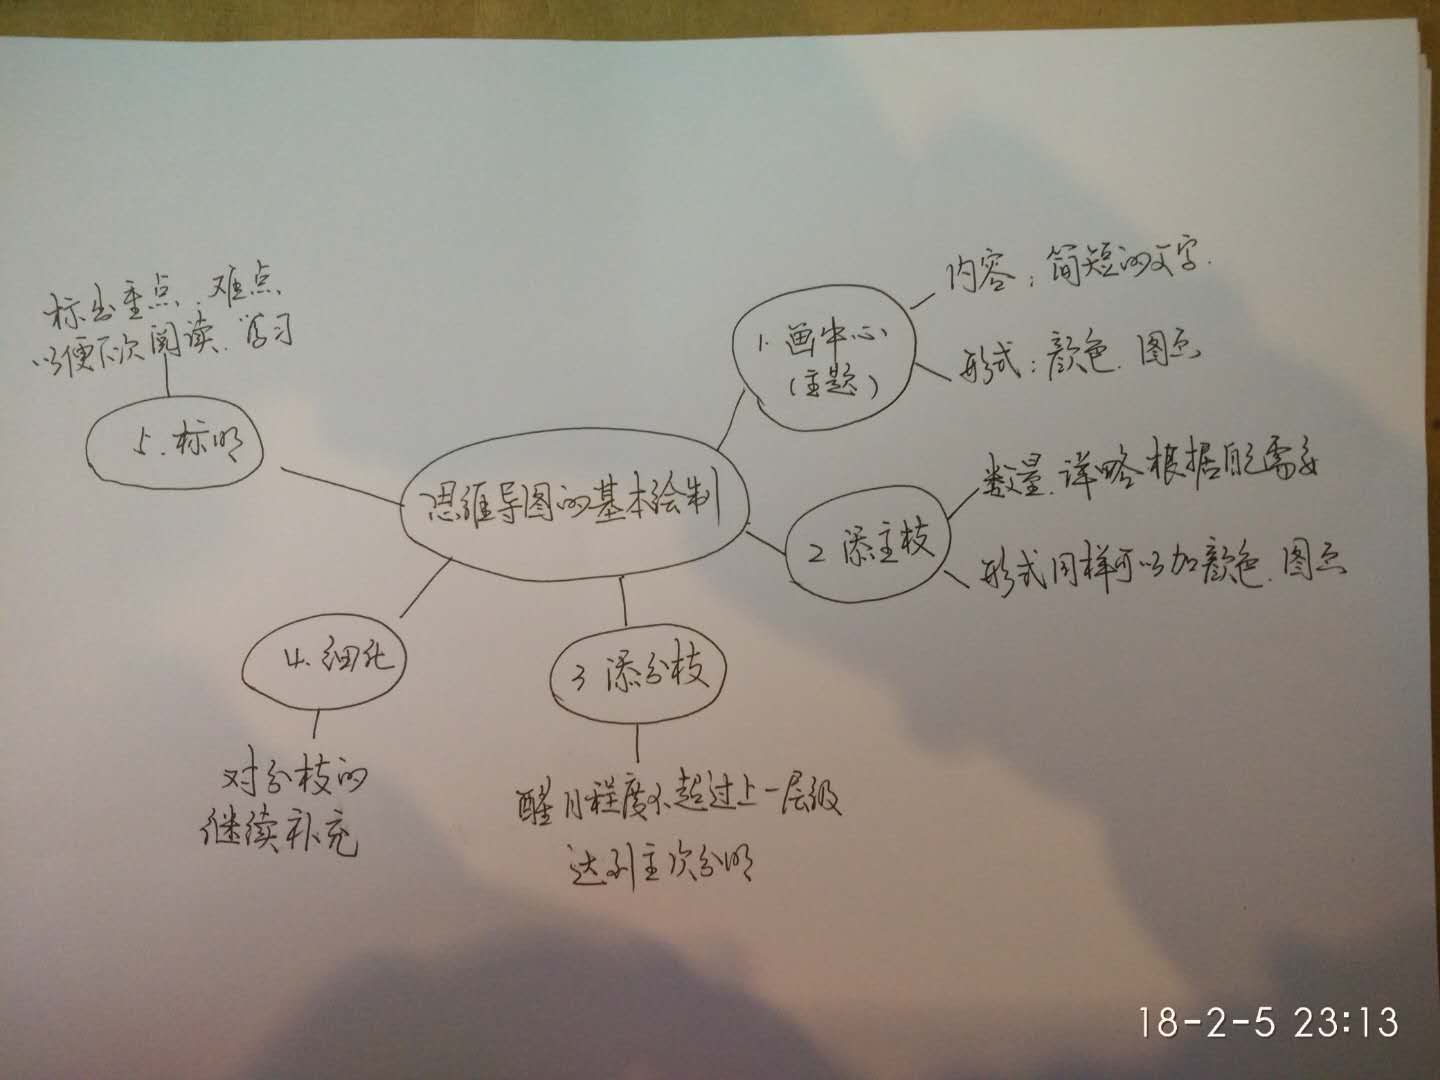 思维导图的基本绘制
1. 画中心
(主题)
内容：简短的文字.
形式：颜色. 图画
2 添主枝
数量.详略根据自己需要
形式同样可以加颜色.图画
3 添分枝
醒目程度不超过上一层级
达到主次分明
4. 细化
对分枝的
继续补充
5. 标明
标出重点、难点、
以便下次阅读、学习
18-2-5 23:13